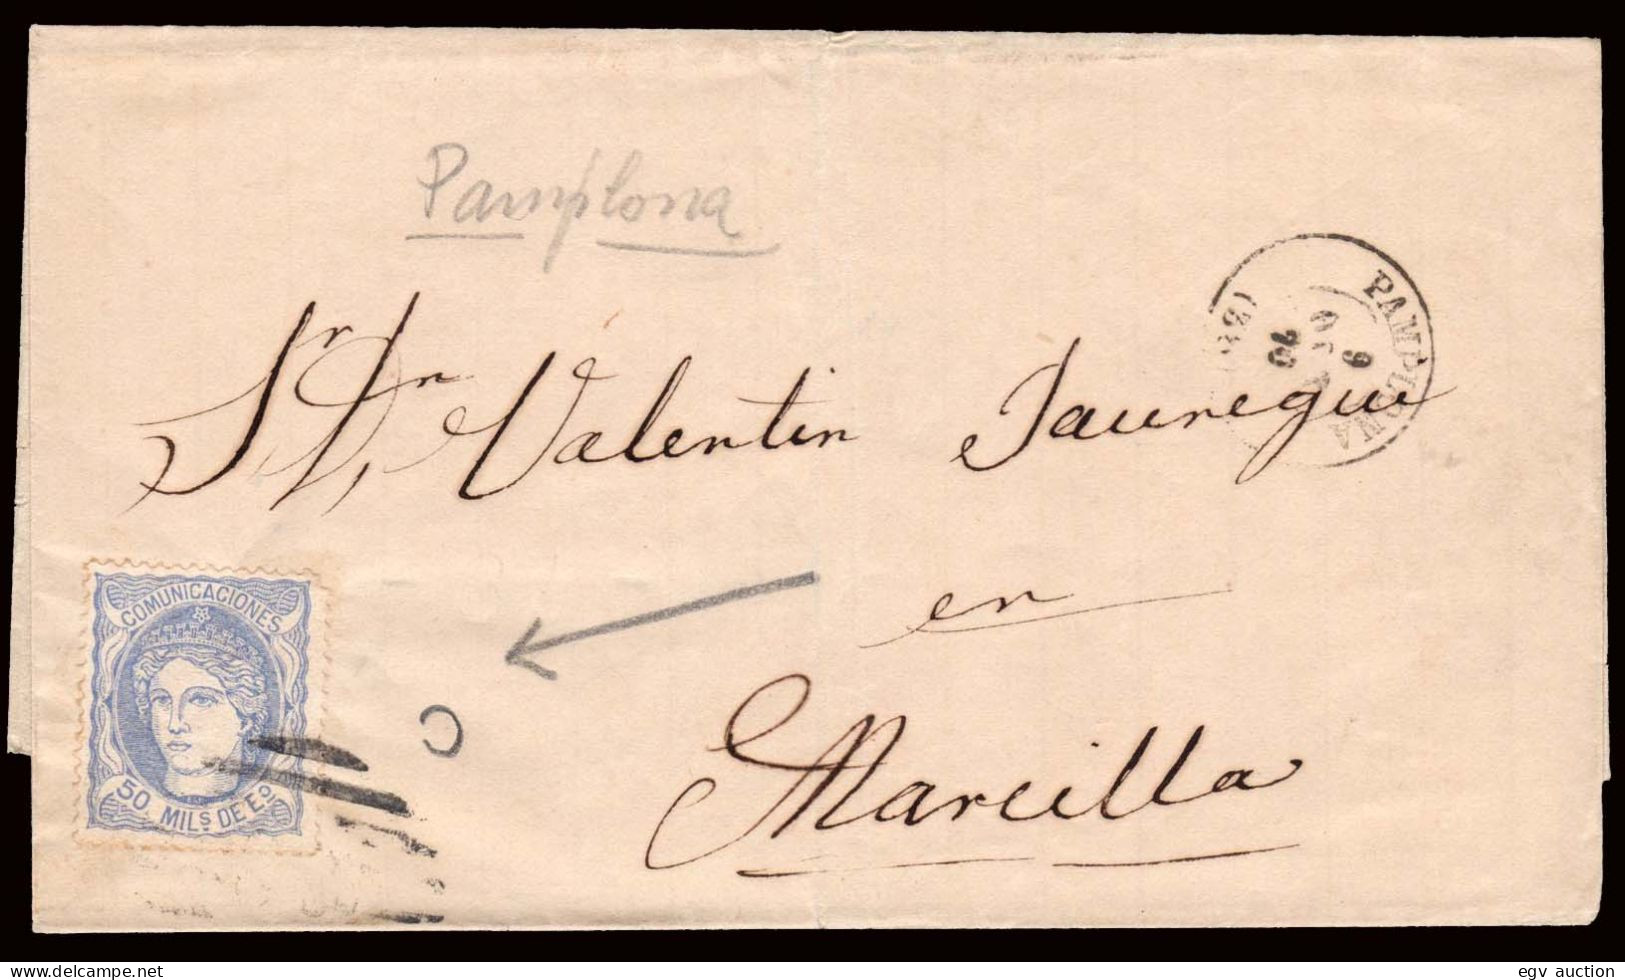 Pamplona
PAMPLONA
9
70
Sr. Dn. Valentin Jauregui
en
Marcilla
COMUNICACIONES
50 MILS. DE EO.
delcampe.net
egv_auction